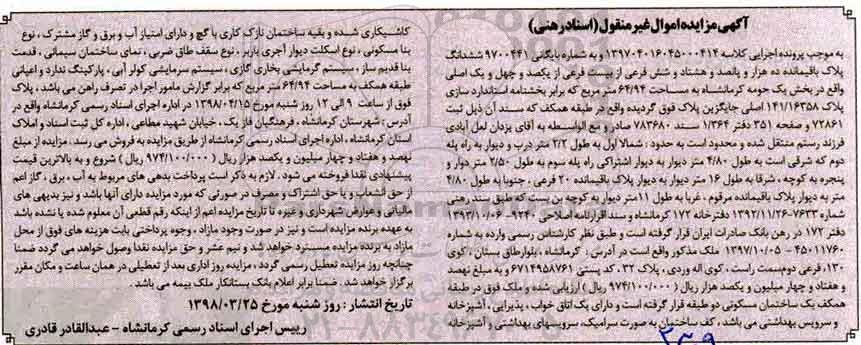 آگهی مزایده اموال غیر منقول (اسناد رهنی)
به موجب پرونده اجرایی کلاسه ۱۳۹۷۰۴۰۱۶۰۴۵۰۰۰۴۱۴ و به شماره بایگانی ۹۷۰۰۴۴۱ ششدانگ
پلاک باقیمانده ده هزار و پانصد و هشتاد و شش فرعی از بیست فرعی از یکصد و چهل و یک اصلی
واقع در بخش یک حومه کرمانشاه به مساحت ۶۴/۹۴ متر مربع که برابر بخشنامه استاندارد سازی
پلاک ۱۴۱/۱۶۳۵۸ اصلی جایگزین پلاک فوق گردیده واقع در طبقه همکف که سند آن ذیل ثبت
۷۲۸۶۱ و صفحه ۳۵۱ دفتر ۱/۳۶۴ سند ۷۸۳۶۸۰ صادر و مع الواسطه به آقای یزدان لعل آبادی
فرزند رستم منتقل شده و محدود است به حدود: شمالا اول به طول ۲/۲ متر درب و دیوار به راه پله
دوم که شرقی است به طول ۴/۸۰ متر دیوار به دیوار اشتراکی راه پله سوم به طول ۲/۵۰ متر دوار و
پنجره به کوچه، شرقا به طول ۱۶ متر دیوار به دیوار پلاک باقیمانده ۲۰ فرعی. جنوبا به طول ۴/۸۰
متر به دیوار پلاک باقیمانده مرقوم. غربا به طول ۱۱ متر دیوار به کوچه بن بست که طبق سند رهنی
شماره ۷۶۳۳-۱۳۹۲/۱۱/۲۶ دفترخانه ۱۷۲ کرمانشاه و سند اقرارنامه اصلاحی ۹۲۴۰- ۱۳۹۳/۱۰/۰۶
دفتر ۱۷۲ در رهن بانک صادرات ایران قرار گرفته است و طبق نظر کارشناس رسمی وارده به شماره
۴۵۰۱۱۷۶۰ - ۱۳۹۷/۱۰/۰۵ ملک مذکور واقع است در آدرس: کرمانشاه، بلوار طاق بستان، کوی
۱۳۰، فرعی دوم سمت راست، کوی اله وردی، پلاک ۳۲، کد پستی ۶۷۱۴۹۵۸۷۶۱ و به مبلغ نهصد
و هفتاد و چهار میلیون و یکصد هزار ریال (۹۷۴/۱۰۰/۰۰۰ ریال) ارزیابی شده و ملک فوق در طبقه
همکف یک ساختمان مسکونی دو طبقه قرار گرفته است و دارای یک اتاق خواب، پذیرایی، آشپزخانه
و سرویس بهداشتی می باشد، کف ساختمان به صورت سرامیک، سرویسهای بهداشتی و آشپزخانه
کاشیکاری شده و بقیه ساختمان نازک کاری با گچ و دارای امتیاز آب و برق و گاز مشترک، نوع
بنا مسکونی، نوع اسکلت دیوار آجری باربر، نوع سقف طاق ضربی، نمای ساختمان سیمانی، قدمت
بنا قدیم ساز، سیستم گرمایشی بخاری گازی، سیستم سرمایشی کولر آبی، پارکینگ ندارد و اعیانی
طبقه همکف به مساحت ۶۴/۹۴ متر مربع که برابر گزارش مامور اجرا در تصرف راهن می باشد، پلاک
فوق از ساعت ۹ الی ۱۲ روز شنبه مورخ ۱۳۹۸/۰۴/۱۵ در اداره اجرای اسناد رسمی کرمانشاه واقع در
آدرس: شهرستان کرمانشاه، فرهنگیان فاز یک، خیابان شهید مطاعی، اداره کل ثبت اسناد و املاک
استان کرمانشاه، اداره اجرای اسناد رسمی کرمانشاه از طریق مزایده به فروش می رسد. مزایده از مبلغ
نهصد و هفتاد و چهار میلیون و یکصد هزار ریال (۹۷۴/۱۰۰/۰۰۰ ریال) شروع و به بالاترین قیمت
پیشنهادی نقدا فروخته می شود. لازم به ذکر است پرداخت بدهی های مربوط به آب، برق، گاز اعم
از حق انشعاب و یا حق اشتراک و مصرف در صورتی که مورد مزایده دارای آنها باشد و نیز بدیهی های
مالیاتی و عوارض شهرداری و غیره تا تاریخ مزایده اعم از اینکه رقم قطعی آن معلوم شده یا نشده باشد
به عهده برنده مزایده است و نیز در صورت وجود مازاد، وجوه پرداختی بابت هزینه های فوق از محل
مازاد به برنده مزایده مسترد خواهد شد و نیم عشر و حق مزایده نقدا وصول خواهد می گردد ضمنا
چنانچه روز مزایده تعطیل رسمی گردد، مزایده روز اداری بعد از تعطیلی در همان ساعت و مکان مقرر
برگزار خواهد شد. ضمنا برابر اعلام بانک بستانکار ملک بیمه می باشد.
تاریخ انتشار: روز شنبه مورخ ۱۳۹۸/۰۳/۲۵
رییس اجرای اسناد رسمی کرمانشاه - عبدالقادر قادری